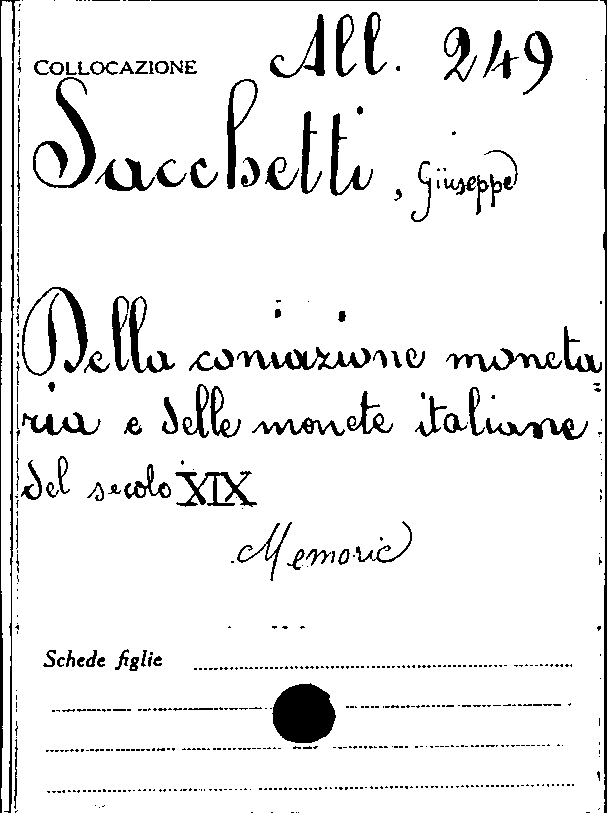 COLLOCAZIONE All. 249
Sacchetti, Giuseppe
Della coniazione moneta=
ria e delle monete italiane
del secolo XIX
Memorie
Schede figlie